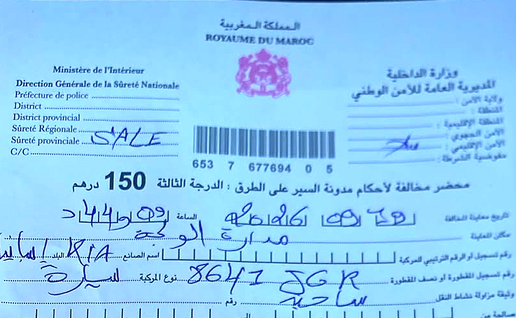 المملكة المغربية
ROYAUME DU MAROC
Ministère de l'Intérieur
Direction Générale de la Sûreté Nationale
Préfecture de police
District
District provincial
Sûreté Régionale
Sûreté provinciale SALE
C/C
وزارة الداخلية
المديرية العامة للأمن الوطني
ولاية الأمن :
المنطقة :
المنطقة الإقليمية :
الأمن الجهوي :
الأمن الإقليمي :
مفوضية الشرطة :
653 7 677694 0 5
محضر مخالفة لأحكام مدونة السير على الطرق : الدرجة الثالثة 150 درهم
تاريخ معاينة المخالفة الساعة
مكان المعاينة مدارة
رقم تسجيل أو الرقم الترتيبي للمركبة اسم الصانع KIA البلد
رقم تسجيل المقطورة أو نصف المقطورة 8641 نوع المركبة سيارة
وثيقة مزاولة نشاط النقل رقم
صالحة من